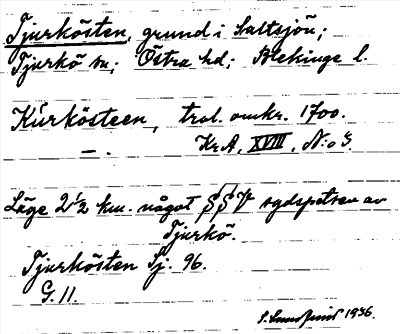 Tjurkösten, grund i Saltsjön;
Tjurkö sn; Östra hd; Blekinge l.
Kürkösteen, trol. omkr. 1700.
— . Kr.A. XVIII. N:o 3.
Läge 2 1/2 km. något S S V sydspetsen av
Tjurkö.
Tjurkösten Sj. 96.
G. 11.
1936.